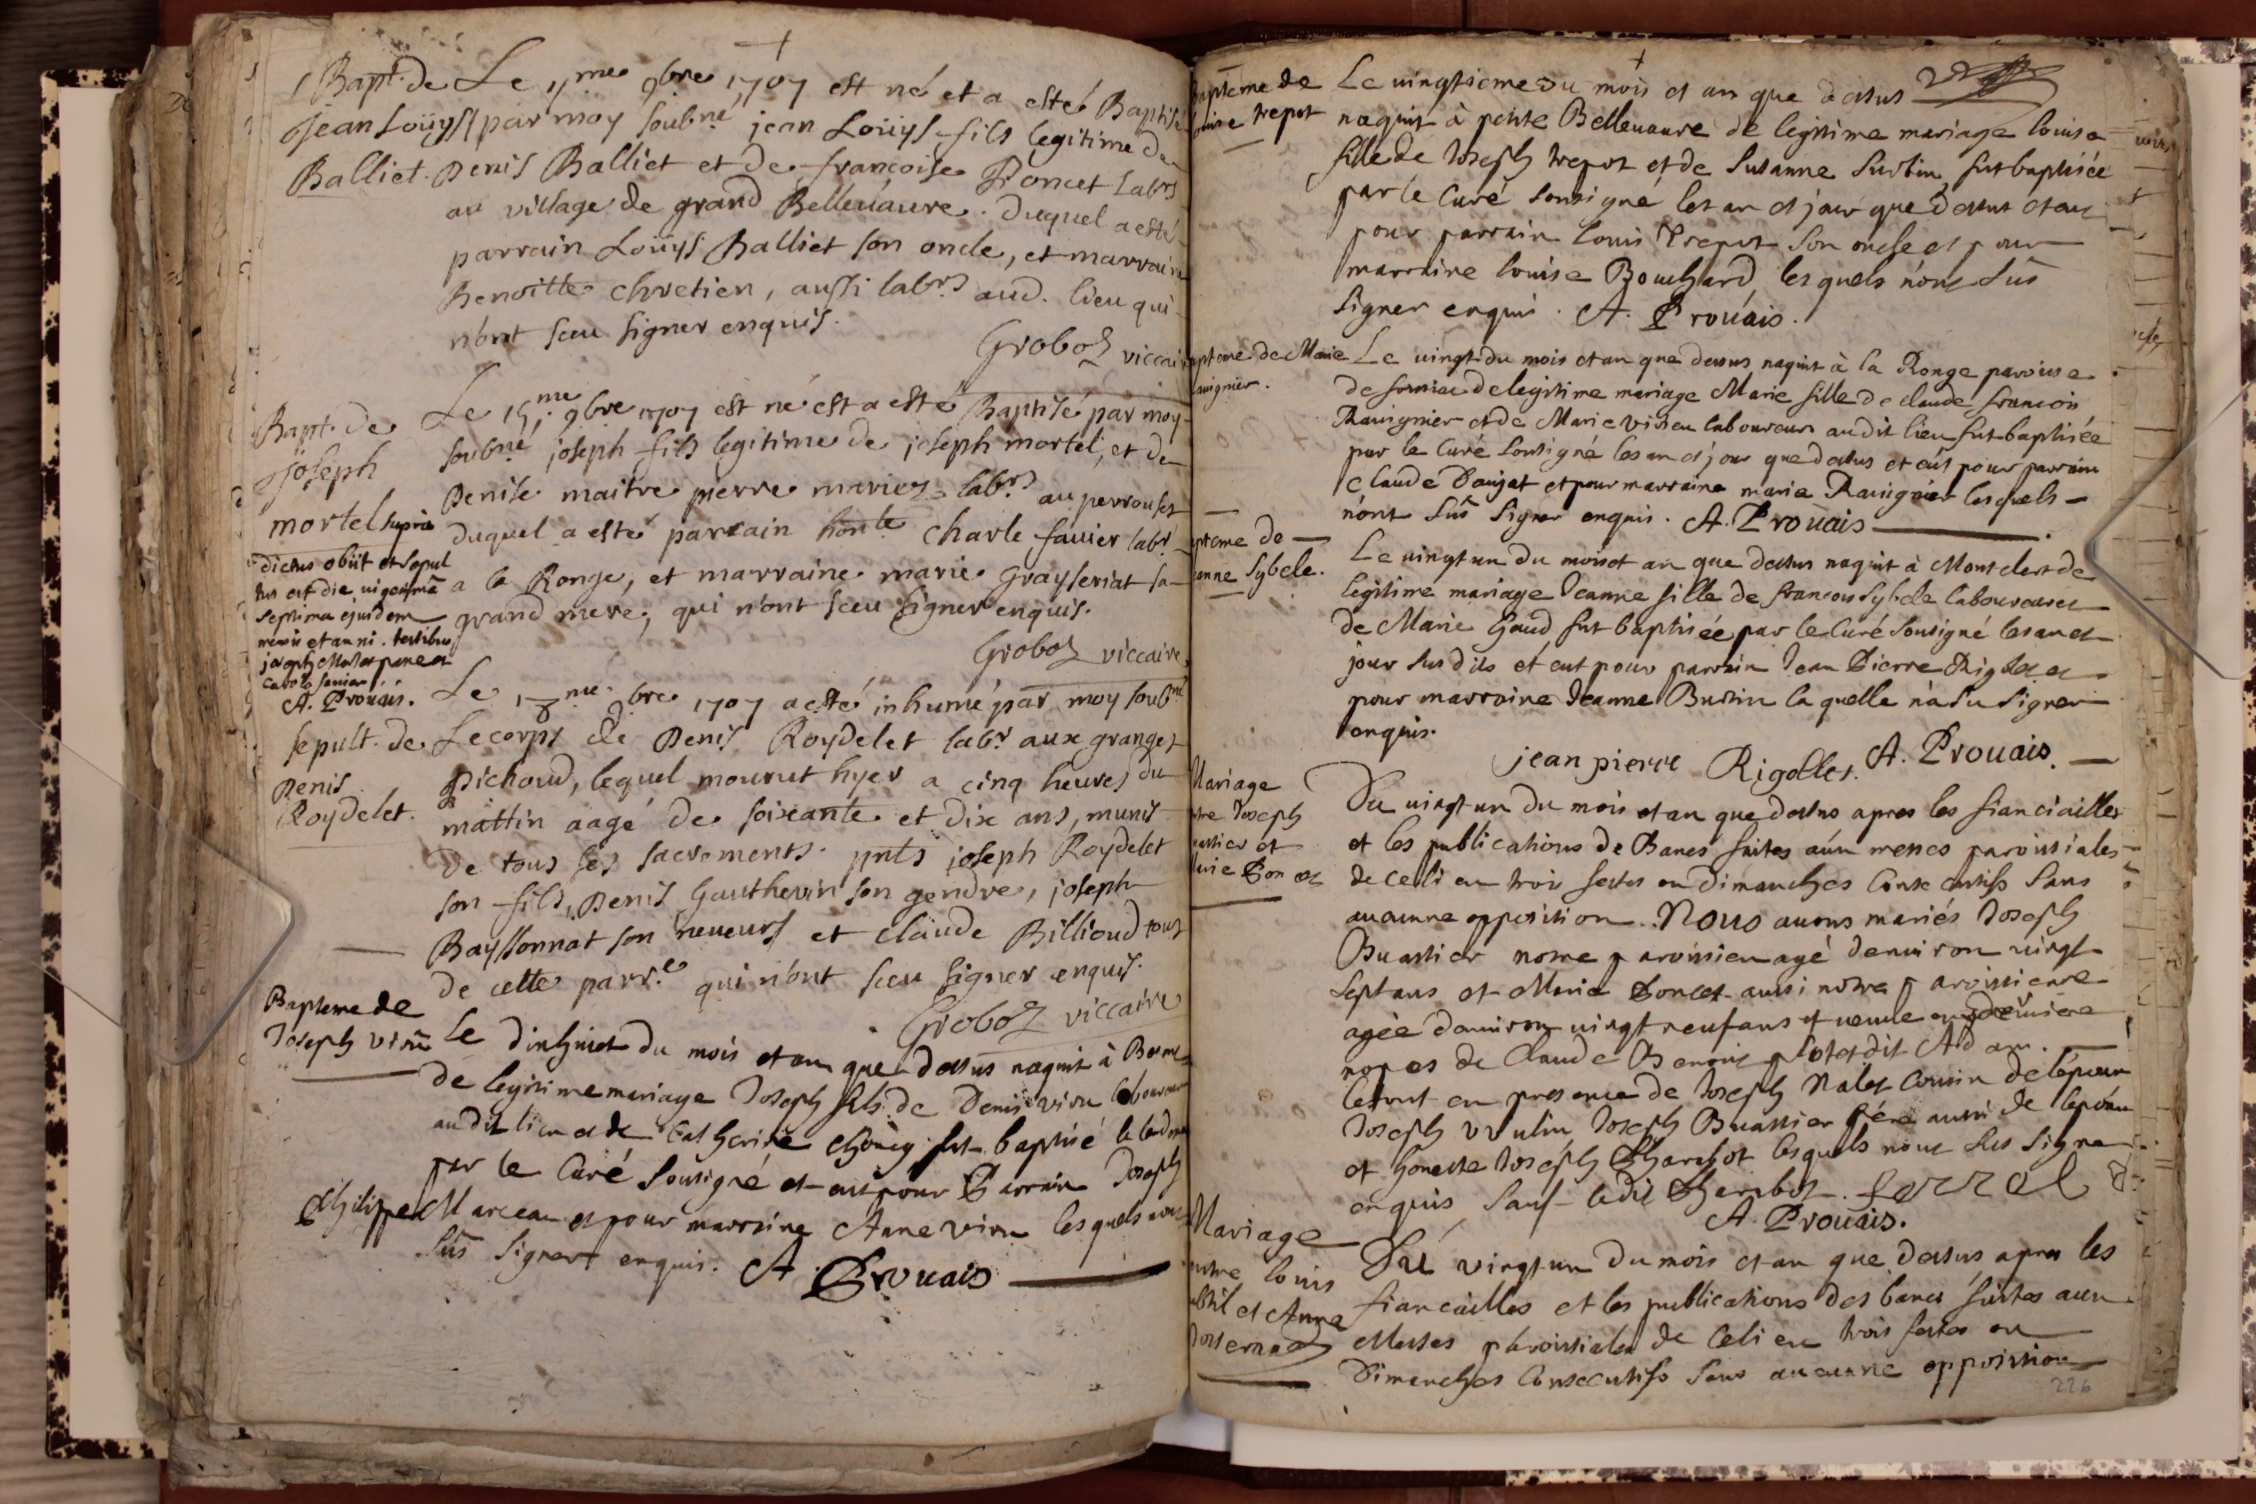 Bapt. de
Jean Loüys
Balliet.
Le 11me 9bre 1707 est né et a esté Baptisé
par moy soubné jean Loüys fils legitime de
Denis Balliet et de françoise Poncet labrs
au village de grand Belleuáure. duquel a esté
parrain Loüys Balliet son oncle, et marraine
Benoitte chretien, aussi labrs aud. lieu qui
n'ont sceu signer enquis.
Groboz viccaire
Bapt. de
joseph
mortel supra
dictus obiit et sepul
tus est die uigesima
septima ejusdem
mensis et anni. testibus
joseph Mortel patre et
carolo fauier
A. Prouáis.
Le 15me 9bre 1707 est né est a esté Baptisé par moy
soubné, joseph fils legitime de joseph mortel, et de
Denise maitre pierre mariez labrs au perrouset
duquel a esté parrain honle charle fauier labr.
a la Ronge, et marraine marie grayseriat sa
grand mere, qui n'ont sceu signer enquis.
Groboz viccaire
sepult. de
Denis
Roydelet.
Le 18me 9bre 1707 a esté inhumé par moy soubné
Le corps de Denis Roydelet labr aux granges
pichoud, lequel mourut hyer a cinq heures du
mattin aagé de soixante et dix ans, munis
de tous ses sacrements. pnts joseph Roydelet
son fils, Denis Gautherin son gendre, joseph
Bayssonnat son neueurs et claude Billioud tous
de cette parr.e qui n'ont sceu signer enquis.
Groboz viccaire
Bapteme de
Joseph viru
Le dixhuict du mois et an que dessus naquit à
de legitime mariage Joseph fils de Denis viru laboureur
audit lieu et de Catherine fut baptisé le
par le Curé sousigné et eut pour Parrain Joseph
Philippe Marceau et pour marraine Anne viru lesquels n'ont
sus signer enquis. A. Prouais
Bapteme de
louise trepot
Le uingtieme du mois et an que dessus
naquit à petite Belleuaure de legitime mariage louise
fille de Joseph trepot et de Susanne Surbin fut baptisée
par le Curé sousigné les an et jour que dessus et eut
pour parrain louis Trepot son oncle et pour
marraine louise Bouchard, lesquels n'ont sus
signer enquis. A. Prouáis.
Bapteme de Marie
Rauignier.
Le uingt du mois et an que dessus naquit à la Ronge paroisse
de de legitime mariage Marie fille de claude francois
Rauignier et de Marie laboureurs audit lieu fut baptisée
par le Curé sousigné les an et jour que dessus et eut pour parrain
Claude Daujat et pour marraine marie Rauignier lesquels
n'ont sus signer enquis. A. Prouais
Bapteme de
Jeanne Sybele.
Le uingt un du mois et an que dessus naquit à Montclert de
legitime mariage Jeanne fille de francois Sybele laboureur et
de Marie Gaud fut baptisée par le Curé sousigné les an et
jour sus dits et eut pour parrain Jean Pierre Rigolet et
pour marraine Jeanne Burtin la quelle n'a su signer
enquis.
jean pierre Rigollet. A. Prouais.
Mariage
entre Joseph
Buattier et
Marie Poncet
Du uingt un du mois et an que dessus apres les fianciailles
et les publications de Bancs faites aux messes paroisiales
de ce lieu trois festes ou dimanches Consecutifs sans
aucunne opposition. Nous auons mariés Joseph
Buattier notre paroisien agé denuiron uingt
sept ans et Marie Poncet aussi notre paroissienne
agée denuiron uingt neuf ans et ueuue en dernière
noces de Claude Benoit dit Adam.
le tout en presence de Joseph Nalet Cousin de lépoux
Joseph vvulin Joseph Buattier frére aussi de lepoux
et honeste Joseph Charbot lesquels n'ont sus signer
enquis sauf ledit Cherbot.
A. Prouais.
Mariage
entre louis
et Anne
Du vingt un du mois et an que dessus apres les
fiancailles et les publications des bancs faites aux
Messes paroissiales de ce lieu trois festes ou
Dimanches Consecutifs sans aucunne opposition
226